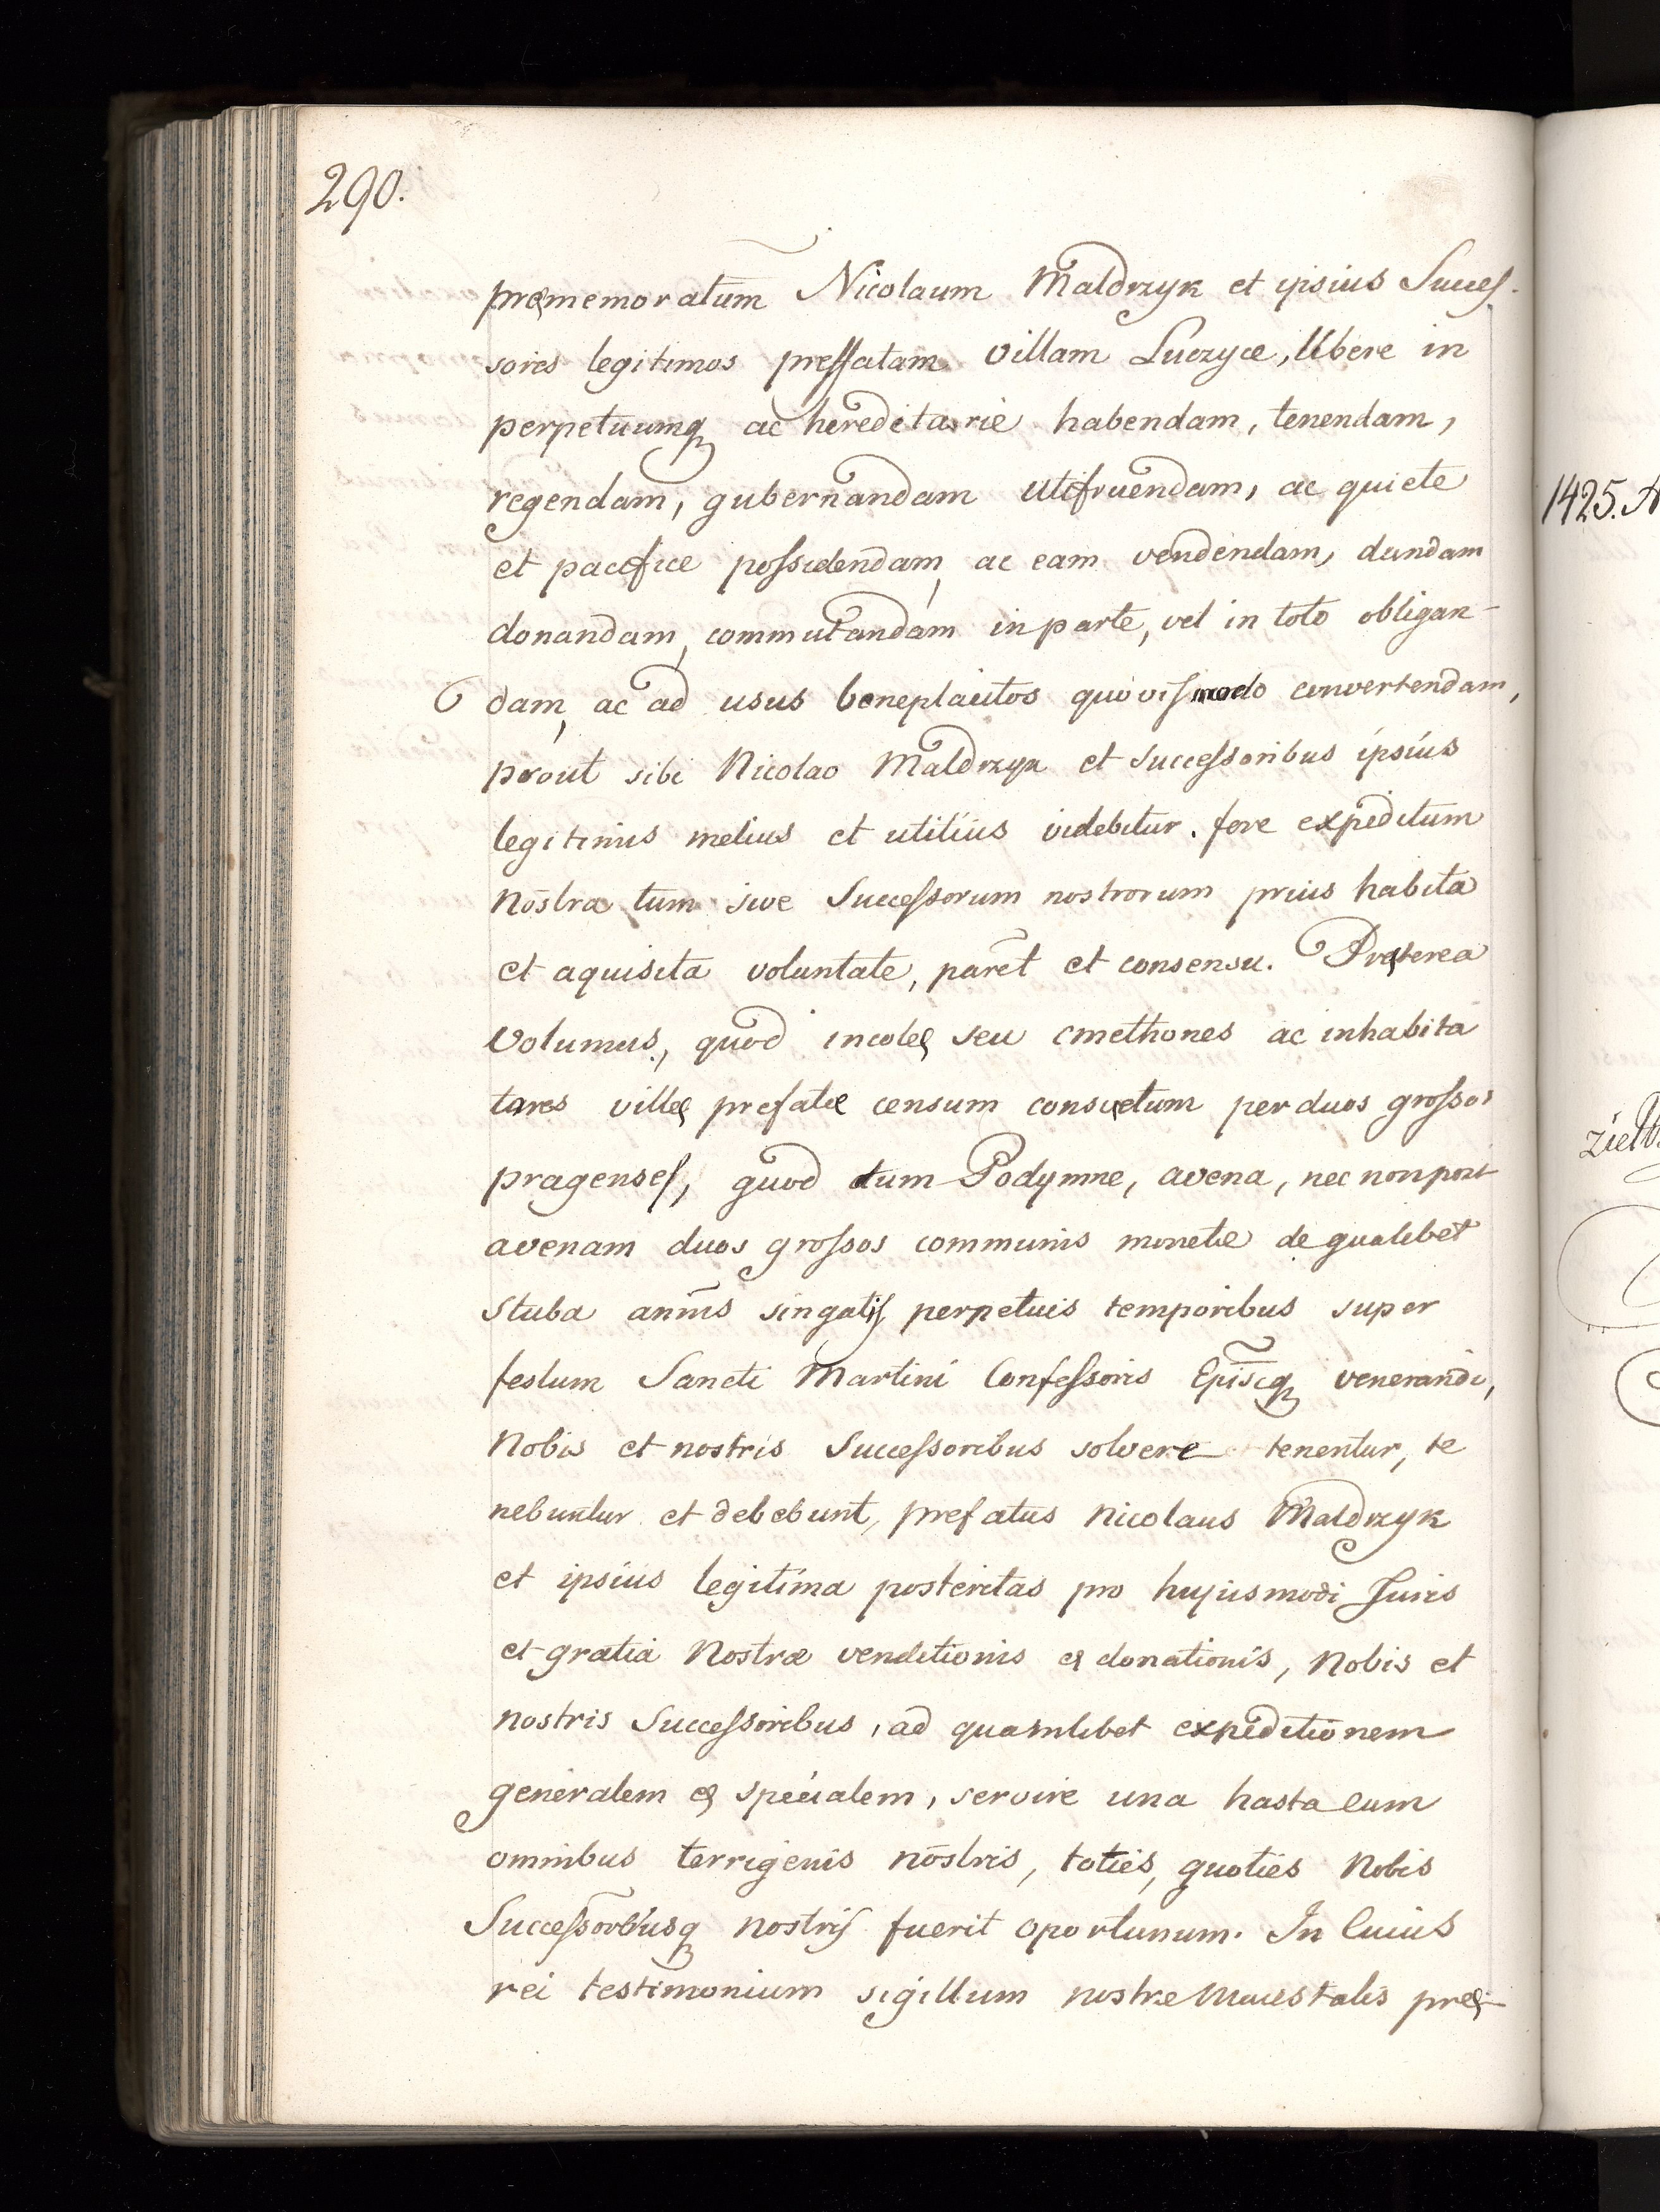 290.
pręmemoratum Nicolaum Maldrzyk et ipsius Succes-
sores legitimos preffatam villam Luczyce, libere in
perpetuumq ac hereditarie habendam, tenendam,
regendam, gubernandam utifruendam, ac quiete
et pacifice possidendam, ac eam vendendam, dandam
donandam, commutandam in parte, vel in toto obligan-
dam, ac ad usus beneplacitos quovismodo convertendam,
prout sibi Nicolao Maldrzyk et successoribus ipsius
legitimis melius et utilius videbitur. fore expeditum
nostra tum sive Successorum nostrorum prius habita
et aquisita voluntate, paret et consensu. Pręterea
volumus, quod incolę seu cmethones ac inhabita
tores villę prefatæ censum consuetum per duos grossos
pragenses, quod tum Podymne, avena, nec non post
avenam duos grossos communis monetæ de qualibet
stuba annis singulis perpetuis temporibus super
festum Sancti Martini Confessoris Episcq venerandi,
Nobis et nostris Successoribus solvere tenentur, te
nebuntur et debebunt, prefatus Nicolaus Maldrzyk
et ipsius legitima posteritas pro hujusmodi Juris
et gratia Nostræ venditionis et donationis, Nobis et
nostris Successoribus, ad quamlibet expeditionem
generalem et specialem, servire una hasta cum
omnibus terrigenis nostris, toties, quoties Nobis
Successoribusq nostris fuerit oportunum. In Cuius
rei testimonium sigillum nostræ Maiestatis prę-
1425. A